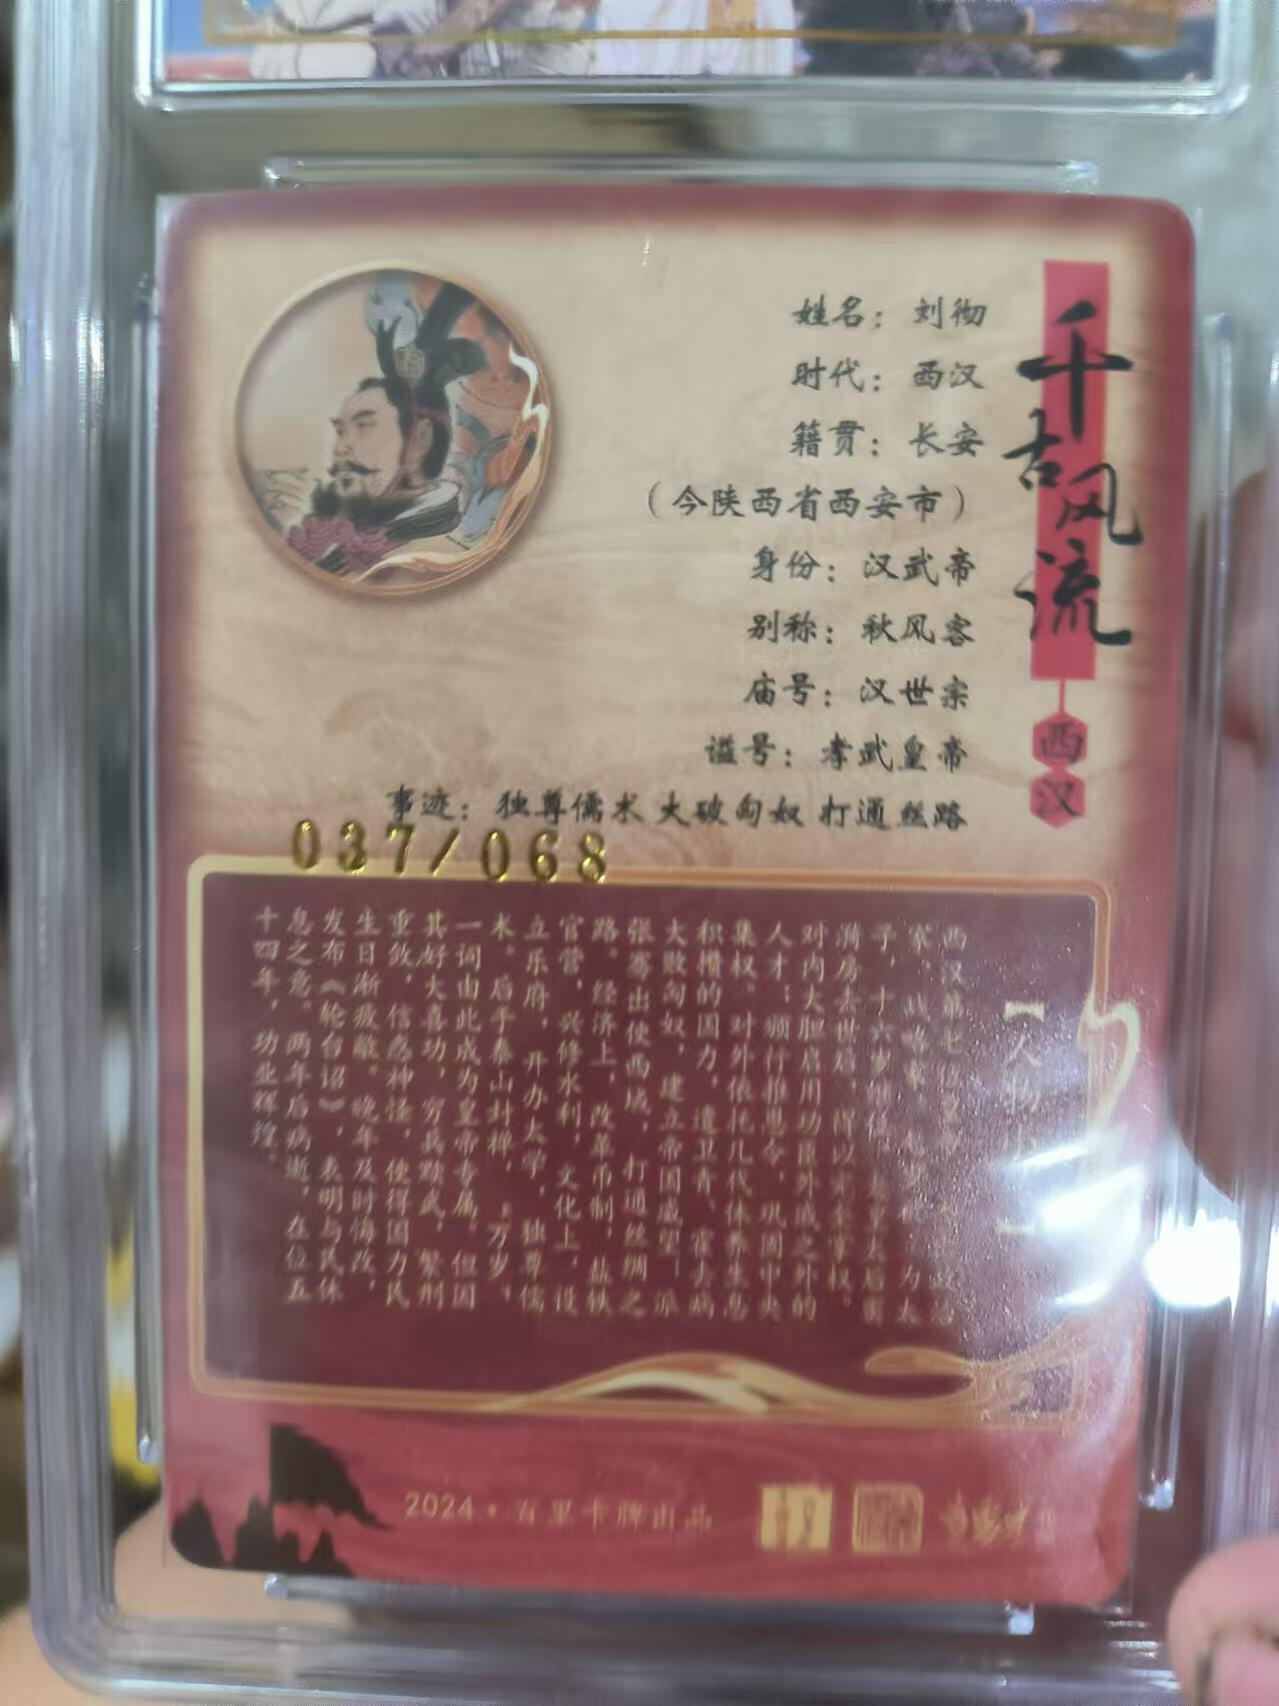 千古风流
西汉
姓名：刘彻
时代：西汉
籍贯：长安
（今陕西省西安市）
身份：汉武帝
别称：秋风客
庙号：汉世宗
谥号：孝武皇帝
事迹：独尊儒术 大破匈奴 打通丝路
037/068
【人物
西汉第七位皇帝
家、战略家 为太
子，十六岁 太后窦
漪房去世后，得以 掌权。
对内大胆启用功臣外戚之外的
人才；颁行推恩令，巩固中央
集权。对外依托几代休养生息
积攒的国力，遣卫青、霍去病
大败匈奴，建立帝国威望；派
张骞出使西域，打通丝绸之
路。经济上，改革币制，盐铁
官营，兴修水利，文化上，设
立乐府，开办太学，独尊儒
术。后于泰山封禅，“万岁”
一词由此成为皇帝专属。但因
其好大喜功，穷兵黩武，繁刑
重敛，信惑神怪，使得国力民
生日渐疲敝。晚年及时悔改，
发布《轮台诏》，表明与民休
息之意。两年后病逝，在位五
十四年，功业辉煌。
2024·百里卡牌出品